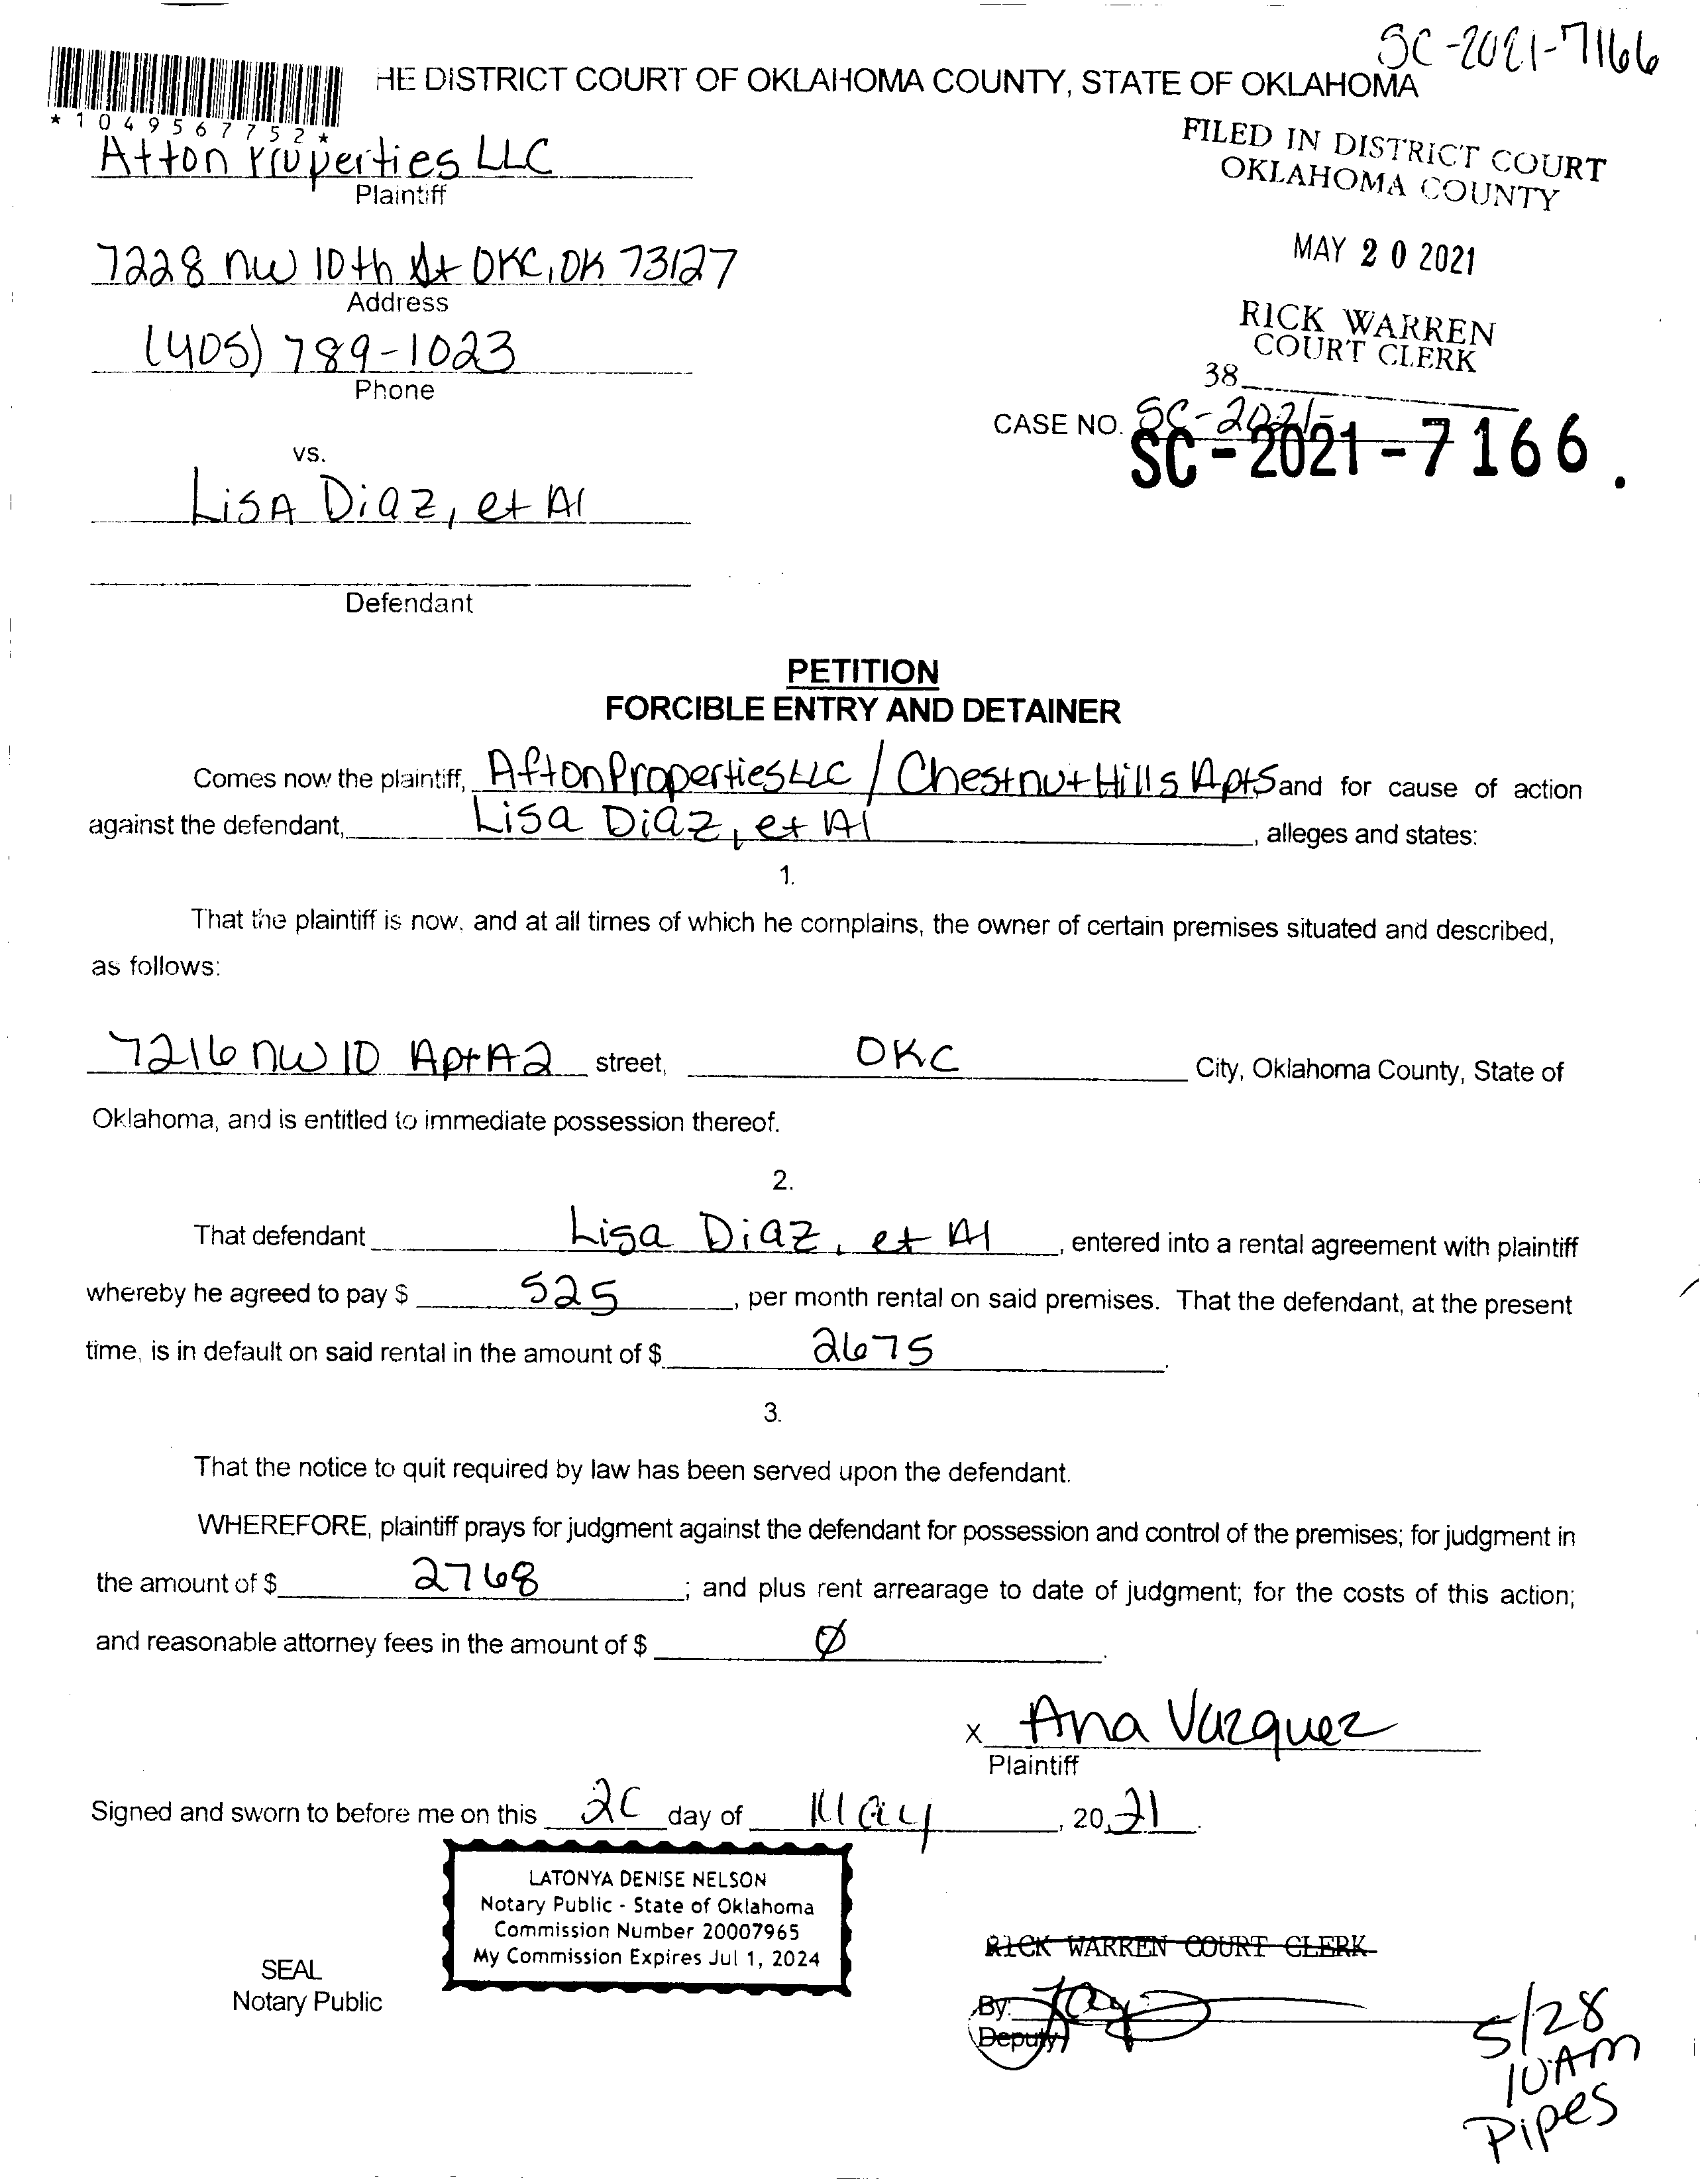 SC-2021-7166
HE DISTRICT COURT OF OKLAHOMA COUNTY, STATE OF OKLAHOMA
*1049567752*
Afton Properties LLC
Plaintiff
FILED IN DISTRICT COURT
OKLAHOMA COUNTY
7228 NW 10th St OKC, OK 73127
Address
MAY 20 2021
(405) 789-1023
Phone
RICK WARREN
COURT CLERK
38
CASE NO. SC-2021-
SC-2021-7166.
vs.
Lisa Diaz, et Al
Defendant
PETITION
FORCIBLE ENTRY AND DETAINER
Comes now the plaintiff, Afton Properties LLC / Chestnut Hills Apts and for cause of action
against the defendant, Lisa Diaz, et Al, alleges and states:
1.
That the plaintiff is now, and at all times of which he complains, the owner of certain premises situated and described,
as follows:
7216 NW 10 Apt A2 street, OKC City, Oklahoma County, State of
Oklahoma, and is entitled to immediate possession thereof.
2.
That defendant Lisa Diaz, et Al, entered into a rental agreement with plaintiff
whereby he agreed to pay $ 525, per month rental on said premises. That the defendant, at the present
time, is in default on said rental in the amount of $ 2675.
3.
That the notice to quit required by law has been served upon the defendant.
WHEREFORE, plaintiff prays for judgment against the defendant for possession and control of the premises; for judgment in
the amount of $ 2768; and plus rent arrearage to date of judgment; for the costs of this action;
and reasonable attorney fees in the amount of $ Ø.
x Ana Vazquez
Plaintiff
Signed and sworn to before me on this 20 day of May, 2021.
LATONYA DENISE NELSON
Notary Public - State of Oklahoma
Commission Number 20007965
My Commission Expires Jul 1, 2024
SEAL
Notary Public
RICK WARREN COURT CLERK
By:
Deputy
5/28
10AM
Pipes